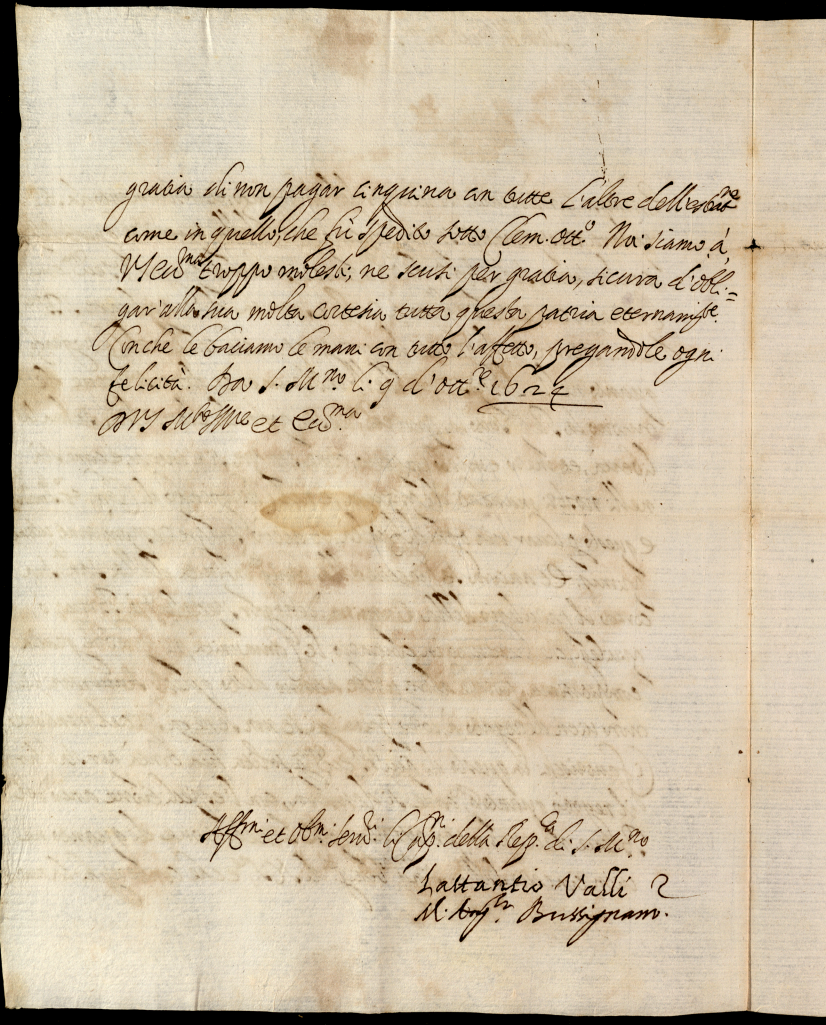 gratia di non pagar cinquina con tutte l'altre dell'
come in quello, che fù spedito sotto Clem. ottº. Noi siamo à
V S Ecc.ma troppo molesti, ne scusi per gratia, sicura d'obli=
gar' alla sua molta cortesia tutta questa patria eternam.te.
Con che le baciamo le mani con tutto l'affetto, pregandole ogni
felicità. Da S. M.no li 9 d'ott.re 1624
D V S et Ecc.ma
Aff.mi et Obl.mi Ser.ri li Cap.ni della Rep.ca di S. M.no
Lattantio Valli
M. Bussignani.